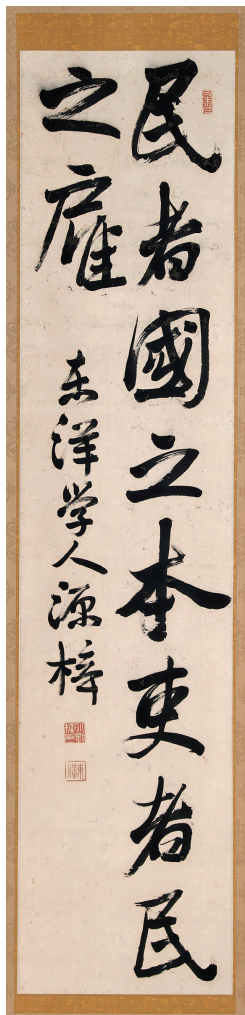 民者國之本吏者民
之雇
東洋学人源梓